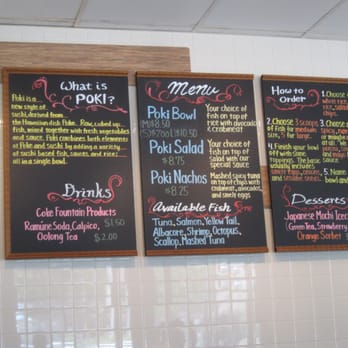 What is
POKI?
Poki is a
new style of
sushi, derived from
the Hawaiian fish Poke. Raw, cubed up
fish, mixed together with fresh vegetables
and sauce. Poki combines both elements
of Poke and Sushi by adding a variety
of sushi based fish, sauces, and rice;
all in a single bowl.
Drinks
Coke Fountain Products
Ramune Soda, Calpico, $1.50
Oolong Tea $2.00
Menu
Poki Bowl
(M)$8.50
Your choice of
fish on top of
rice with avocado &
crabmeat
Poki Salad
$8.75
Your choice of
fish on top of
salad with our
special sauce
Poki Nachos
$8.25
Mashed spicy tuna
on top of chips
crabmeat, avocados,
and smelt eggs
Available Fish
Tuna, Salmon, Yellow Tail,
Albacore, Shrimp, Octopus,
Scallop, Mashed Tuna
How to
Order
1. Choose
2. Choose 3 scoops
of fish for medium
size, 5 for large.
3. Choose
4. Finish your
bowl off with
toppings. The basic
includes
5. Name
bowl and
Desserts
Japanese Mochi Ice
(Green Tea, Strawberry
Orange Sorbet